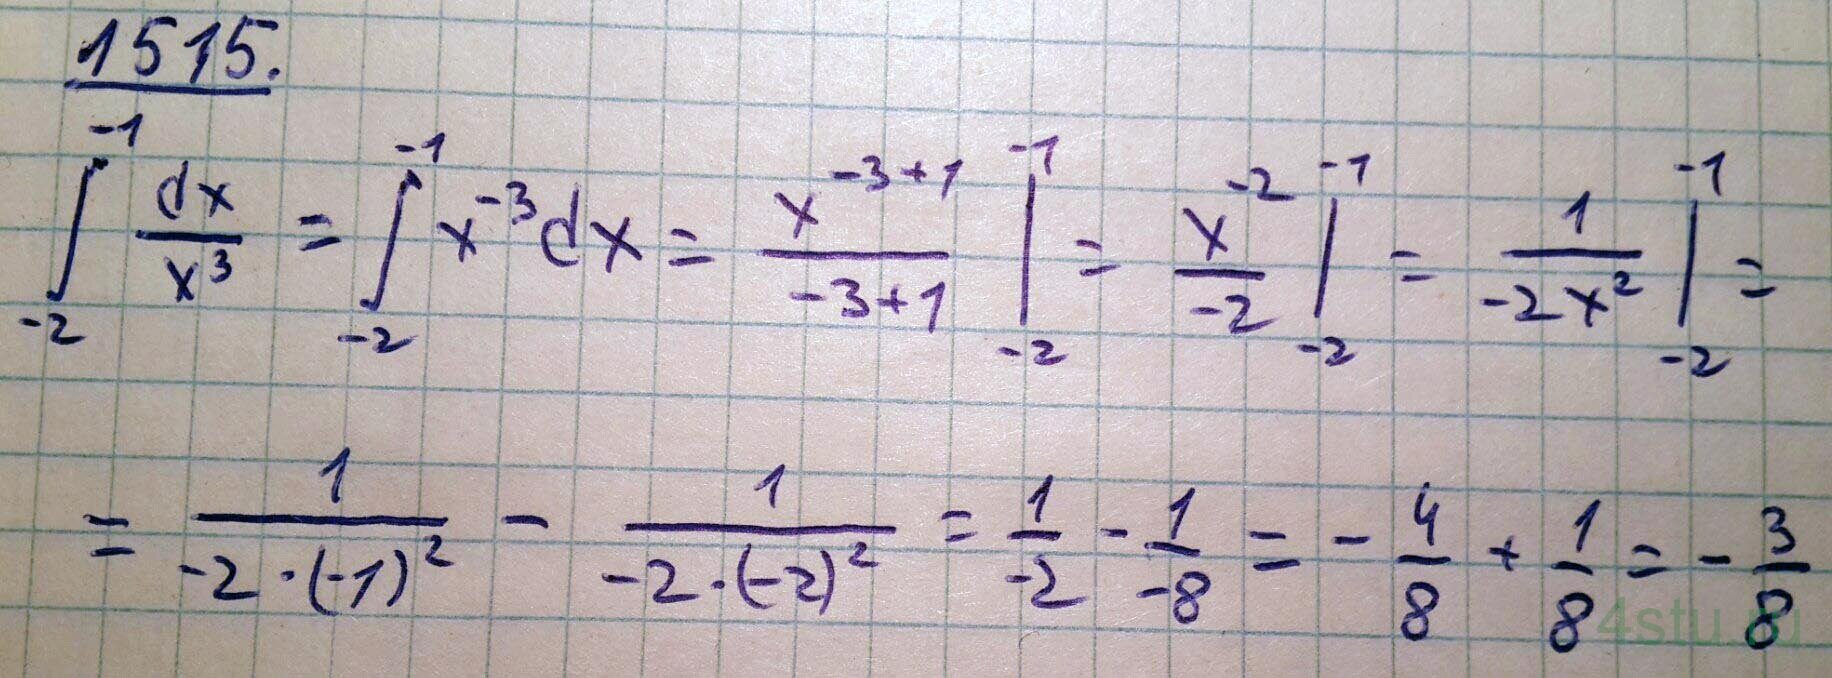 1515.
∫_{-2}^{-1} dx/x³ = ∫_{-2}^{-1} x⁻³dx = x^{-3+1}/(-3+1) |_{-2}^{-1} = x^{-2}/(-2) |_{-2}^{-1} = 1/(-2x²) |_{-2}^{-1} =
= 1/(-2·(-1)²) - 1/(-2·(-2)²) = 1/(-2) - 1/(-8) = - 4/8 + 1/8 = - 3/8
4stu.ru